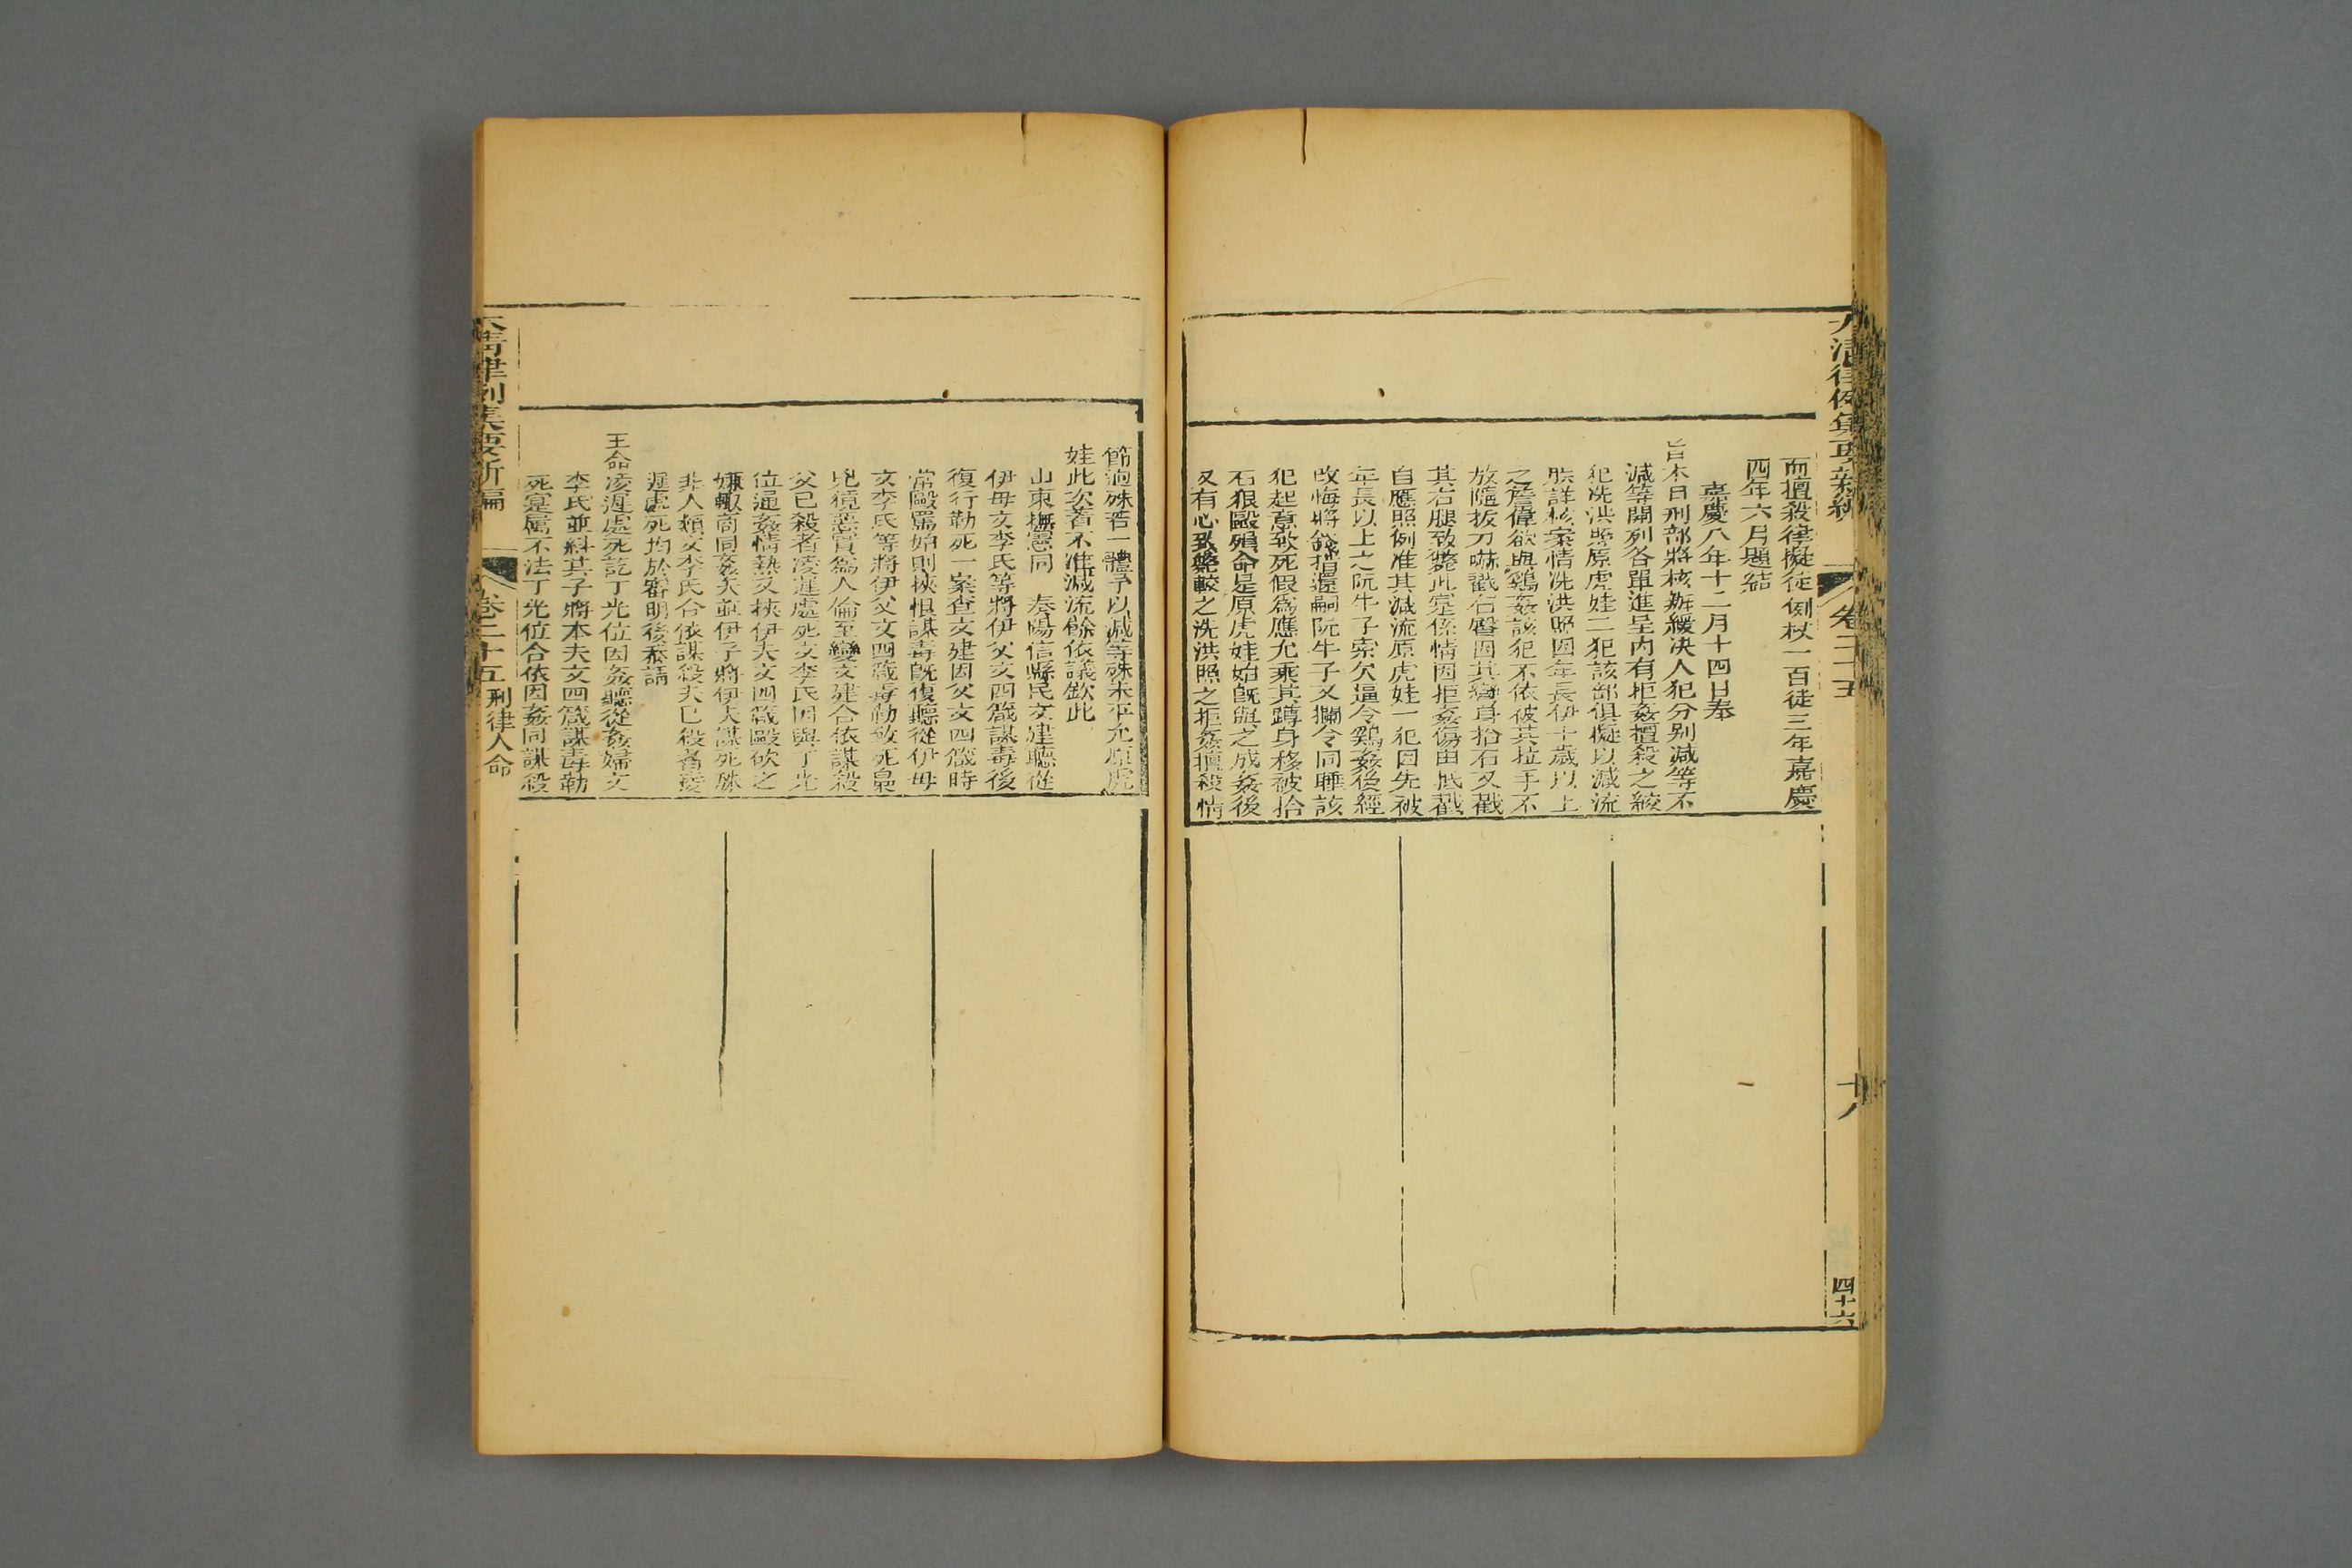 大清律例集要新編
卷二十五
四十六
而擅殺律擬徒例杖一百徒三年嘉慶
四年六月題結
嘉慶八年十二月十四日奉
旨本日刑部將核辦緩決人犯分別減等不
減等開列各單進呈內有拒姦擅殺之絞
犯冼洪照原虎娃二犯該部俱擬以減流
朕詳核案情冼洪照因年長伊十歲以上
之詹偉欲與鷄姦該犯不依彼其拉手不
放隨拔刀嚇戳右臀因其轉身拾石又戳
其右腿致斃此寔係情因拒姦傷由抵戳
自應照例准其減流原虎娃一犯因先被
年長以上之阮牛子索欠逼令鷄姦後經
改悔將錢措還嗣阮牛子又攔令同睡該
犯起意致死假爲應允乘其蹲身移被拾
石狠毆殞命是原虎娃始旣與之成姦後
又有心致斃較之冼洪照之拒姦擅殺情
節逈殊若一體予以減等殊未平允原虎
娃此次著不准減流餘依議欽此
山東撫憲同 奏陽信縣民文建聽從
伊母文李氏等將伊父文四箴謀毒後
復行勒死一案查文建因父文四箴時
常毆罵始則挾恨謀毒旣復聽從伊母
文李氏等將伊父文四箴毒勒致死梟
兇獍惡實爲人倫至變文建合依謀殺
父已殺者凌遲處死文李氏因與丁光
位通姦情熱又挾伊夫文四箴毆砍之
嫌輙商同姦夫並伊子將伊夫謀死殊
非人類文李氏合依謀殺夫已殺者凌
遲處死均於審明後恭請
王命凌遲處死訖丁光位因姦聽從姦婦文
李氏並糾其子將本夫文四箴謀毒勒
死寔屬不法丁光位合依因姦同謀殺
大清律例集要新編
卷二十五
刑律人命